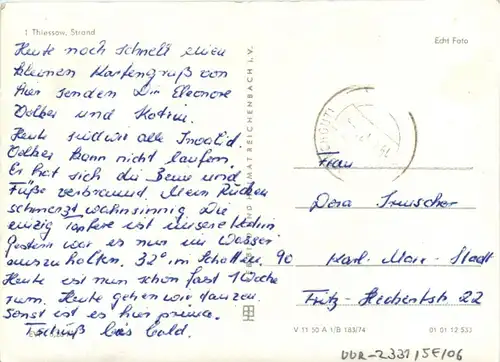 1 Thiessow, Strand
Echt Foto
Heute noch schnell einen
kleinen Kartengruß von
hier senden Dir Eleonore
Volker und Katrin.
Heute sind wir alle Invalid.
Volker kann nicht laufen.
Er hat sich die Beine und
Füße verbrannt. Mein Rücken
schmerzt wahnsinnig. Die
einzig Tapfere ist unsere Katrin
Gestern war es nur im Wasser
auszuhalten. 32° im Schatten.
Heute ist nun schon fast 1 Woche
rum. Heute gehen wir tanzen.
Sonst ist es hier prima.
Tschüß bis bald.
BILD UND HEIMAT REICHENBACH I. V.
Frau
Dora Irmscher
90
Karl-Marx-Stadt
Fritz-Heckertstr. 22
V 11 50 A 1/B 183/74
01 01 12 533
DDR-2331/5F/06